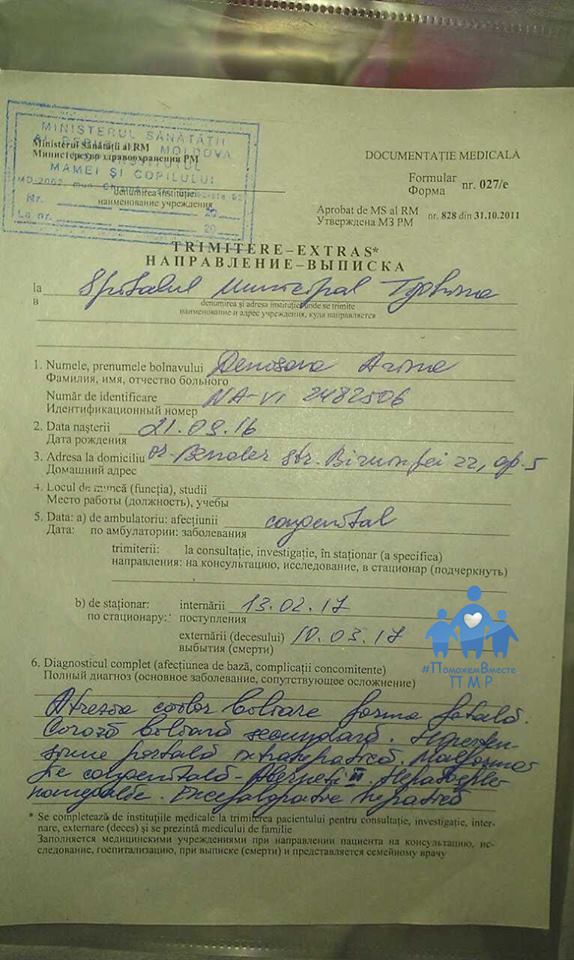 MINISTERUL SĂNĂTĂȚII
AL REPUBLICII MOLDOVA
INSTITUTUL
MAMEI ȘI COPILULUI
MD-2062, mun.
Nr. 20
La nr. 20
Ministerul Sănătății al RM
Министерство здравоохранения РМ
denumirea instituției
наименование учреждения
DOCUMENTAȚIE MEDICALĂ
Formular
Форма nr. 027/e
Aprobat de MS al RM
Утверждена МЗ РМ nr. 828 din 31.10.2011
TRIMITERE–EXTRAS*
НАПРАВЛЕНИЕ–ВЫПИСКА
la Spitalul Municipal
в
denumirea și adresa instituției unde se trimite
наименование и адрес учреждения, куда направляется
1. Numele, prenumele bolnavului Denisova Arina
Фамилия, имя, отчество больного
Număr de identificare NA-VI 2482506
Идентификационный номер
2. Data nașterii 21.09.16
Дата рождения
3. Adresa la domiciliu or. Bender str. 22, ap. 5
Домашний адрес
4. Locul de muncă (funcția), studii
Место работы (должность), учебы
5. Data: a) de ambulatoriu: afecțiunii congenital
Дата: по амбулатории: заболевания
trimiterii: la consultație, investigație, în staționar (a specifica)
направления: на консультацию, исследование, в стационар (подчеркнуть)
b) de staționar: internării 13.02.17
по стационару: поступления
externării (decesului) 10.03.17
выбытия (смерти)
#ПоможемВместе
ПМР
6. Diagnosticul complet (afecțiunea de bază, complicații concomitente)
Полный диагноз (основное заболевание, сопутствующее осложнение)
Atrezia căilor biliare forma fatală.
Ciroză biliară secundară. Hiperten-
siune portală extrahepatică. Malformaț-
ie congenitală - Abernethy II. Hepatosple-
nomegalie. Encefalopatie hepatică
* Se completează de instituțiile medicale la trimiterea pacientului pentru consultație, investigație, inter-
nare, externare (deces) și se prezintă medicului de familie
Заполняется медицинскими учреждениями при направлении пациента на консультацию, ис-
следование, госпитализацию, при выписке (смерти) и представляется семейному врачу